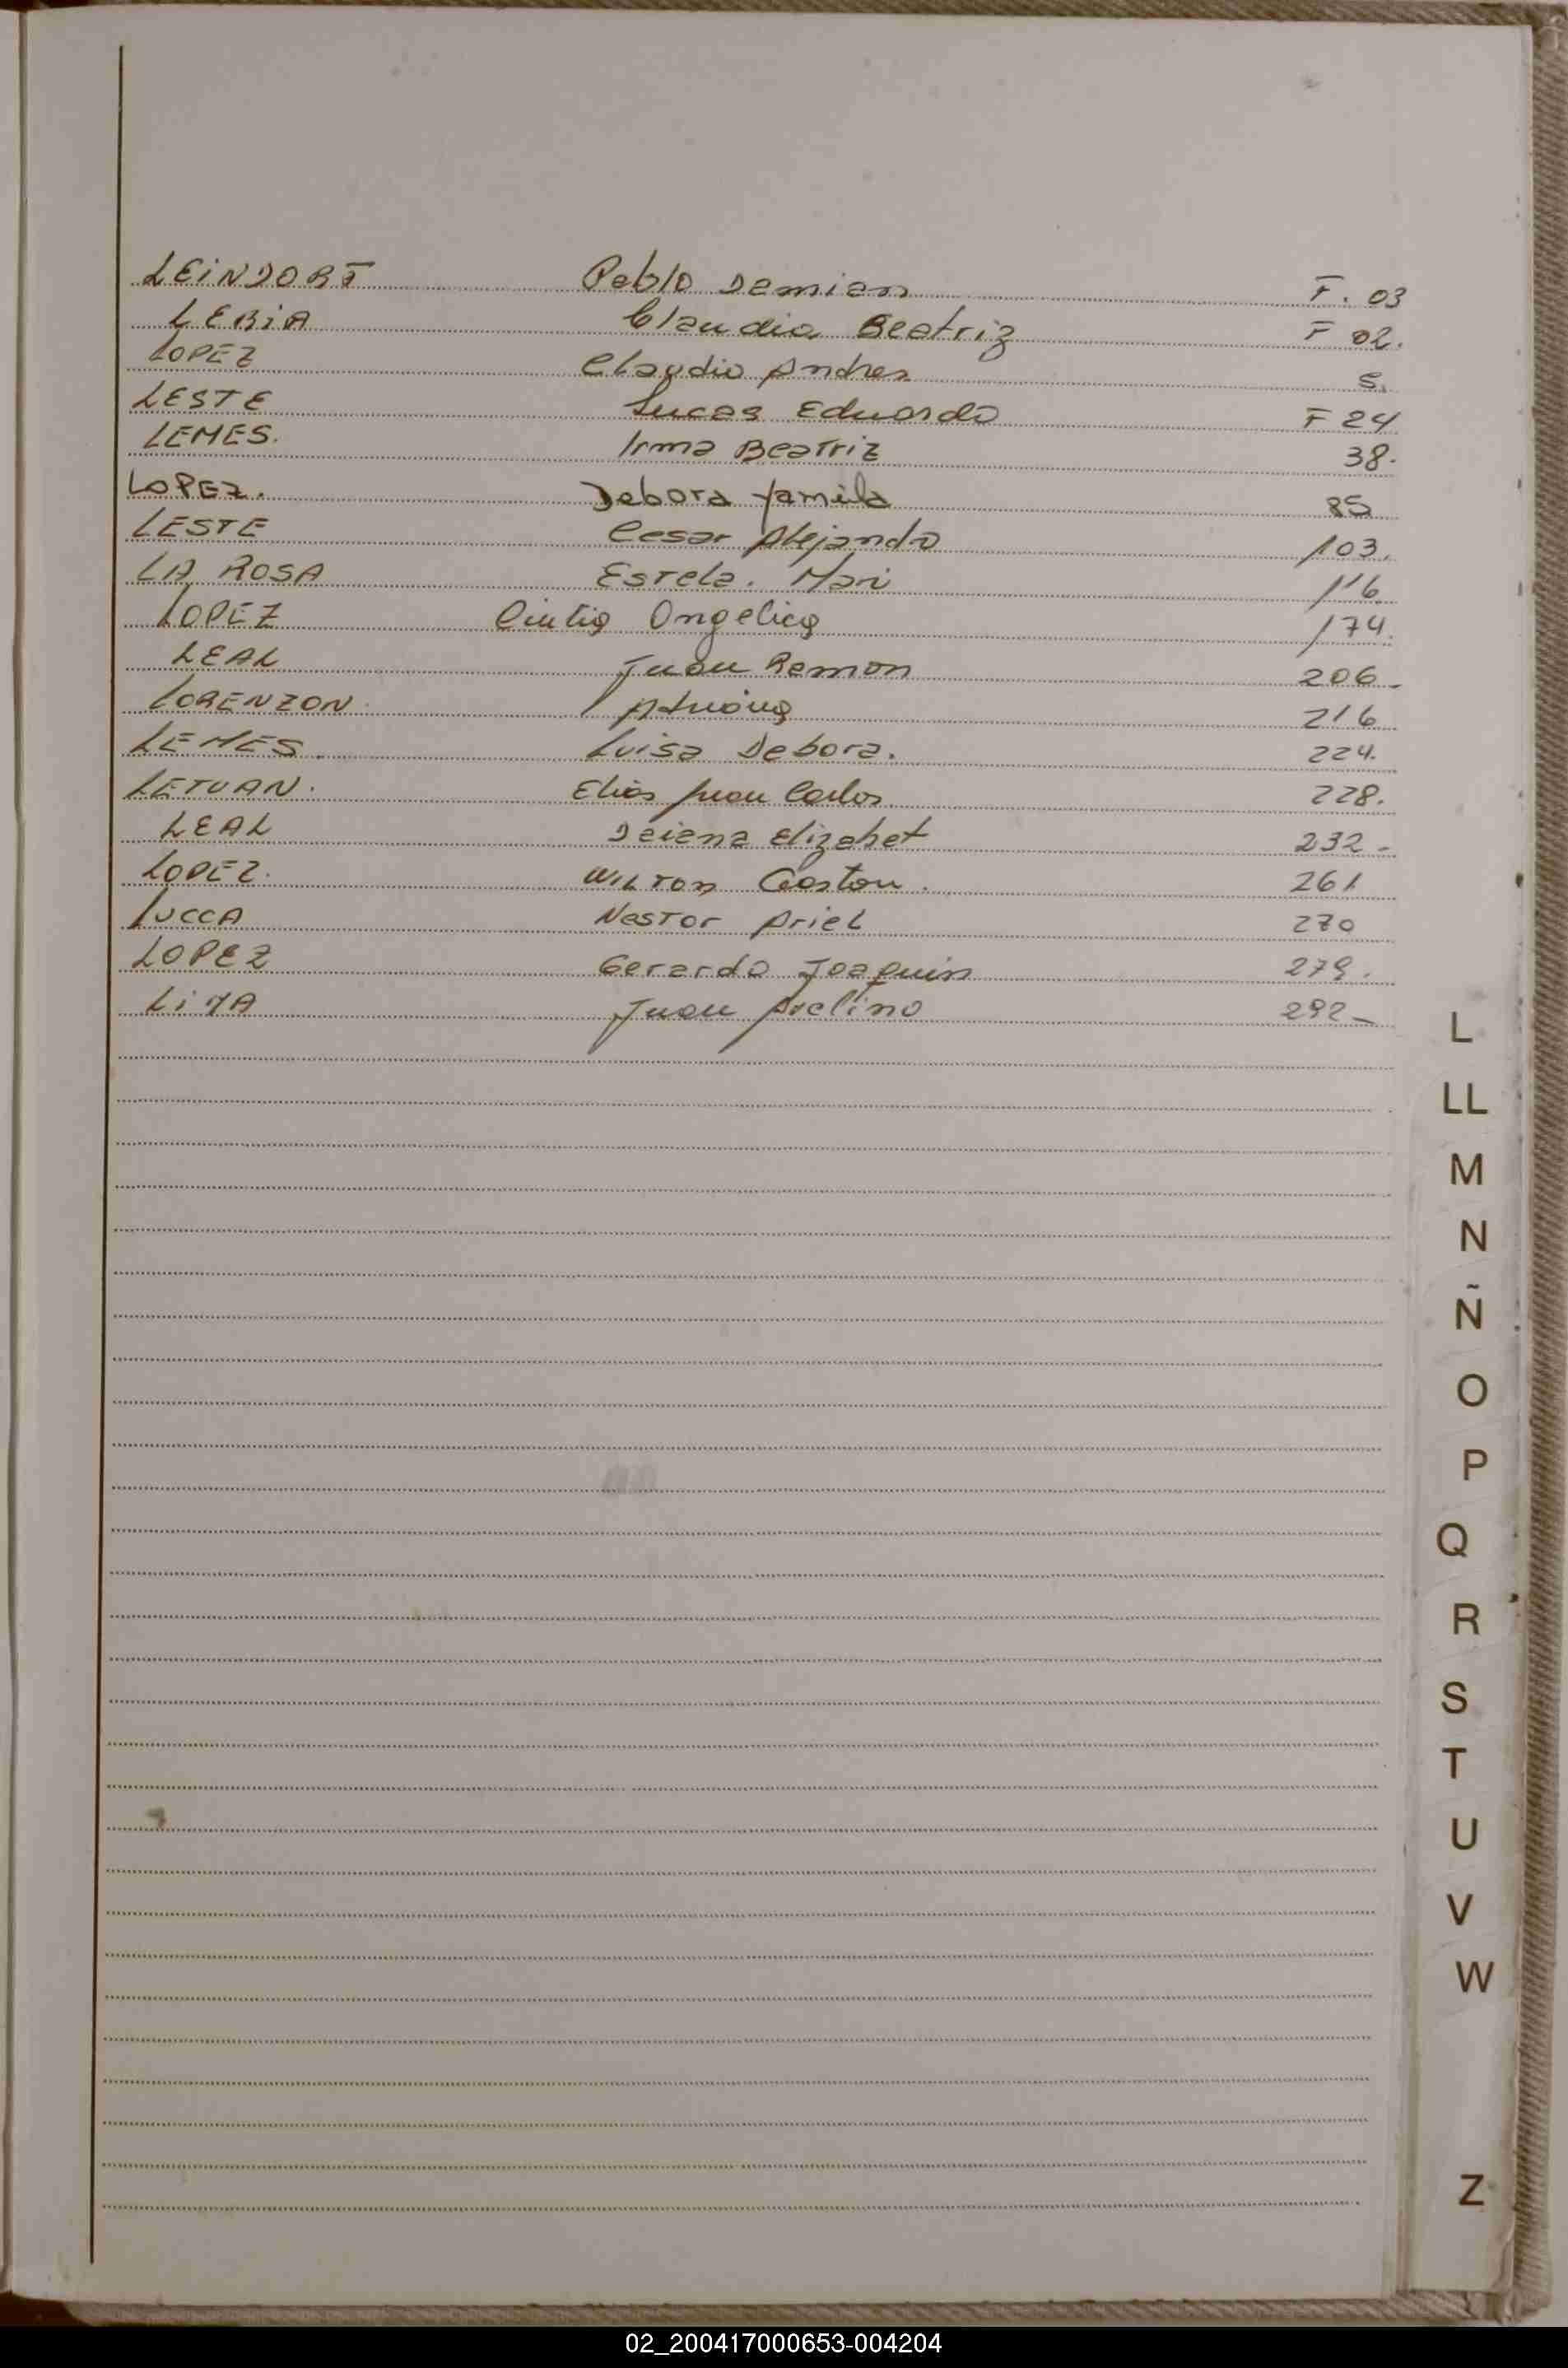 LEINDORF Pablo Damian F. 03
LERIA Claudia Beatriz F 02.
LOPEZ Claudio Andres 5.
LESTE Lucas Eduardo F 24
LEMES. Irma Beatriz 38.
LOPEZ. Debora Yamila 85
LESTE Cesar Alejando 103.
LA ROSA Estela. Mari 116
LOPEZ Cintia Angelica 174.
LEAL Juan Ramon 206-
LORENZON Adriana 216
LEMES. Luisa Debora. 224.
LETUAN. Elias Juan Carlos 228.
LEAL Daiana Elizabet 232-
LOPEZ. Wilton Gaston. 261
LUCCA Nestor Ariel 270
LOPEZ Gerardo Joaquin 279.
LIMA Juan Avelino 292-
L
LL
M
N
Ñ
O
P
Q
R
S
T
U
V
W
Z
02_200417000653-004204